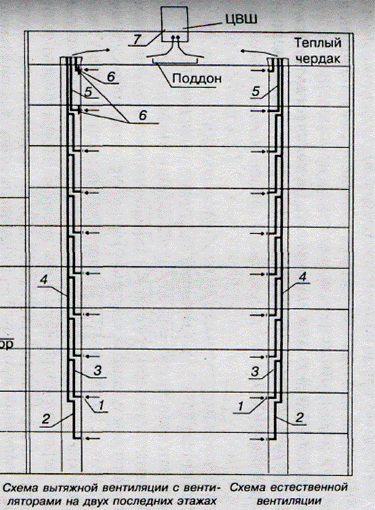 ЦВШ
7
Теплый
чердак
6
Поддон
5
5
6
4
4
ор
3
3
1
1
2
2
Схема вытяжной вентиляции с венти-
ляторами на двух последних этажах
Схема естественной
вентиляции